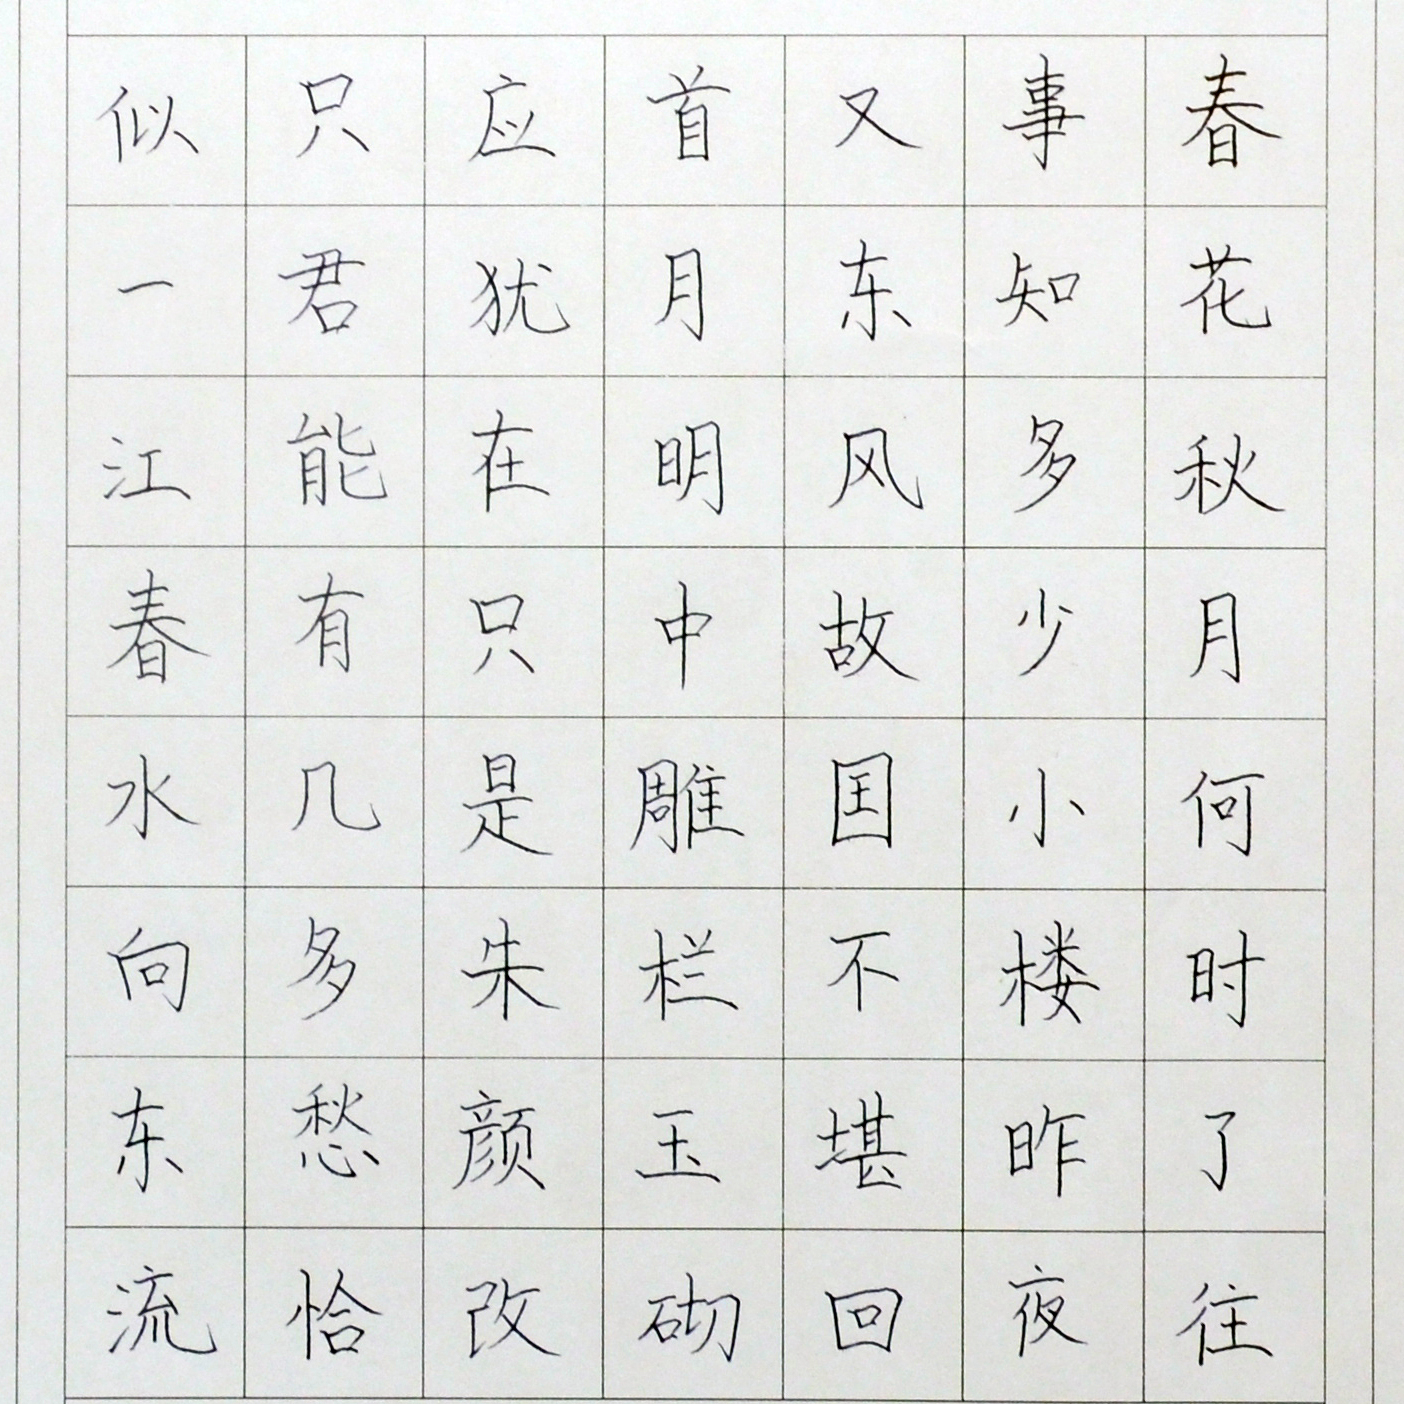 春花秋月何时了往
事知多少小楼昨夜
又东风故国不堪回
首月明中雕栏玉砌
应犹在只是朱颜改
只君能有几多愁恰
似一江春水向东流